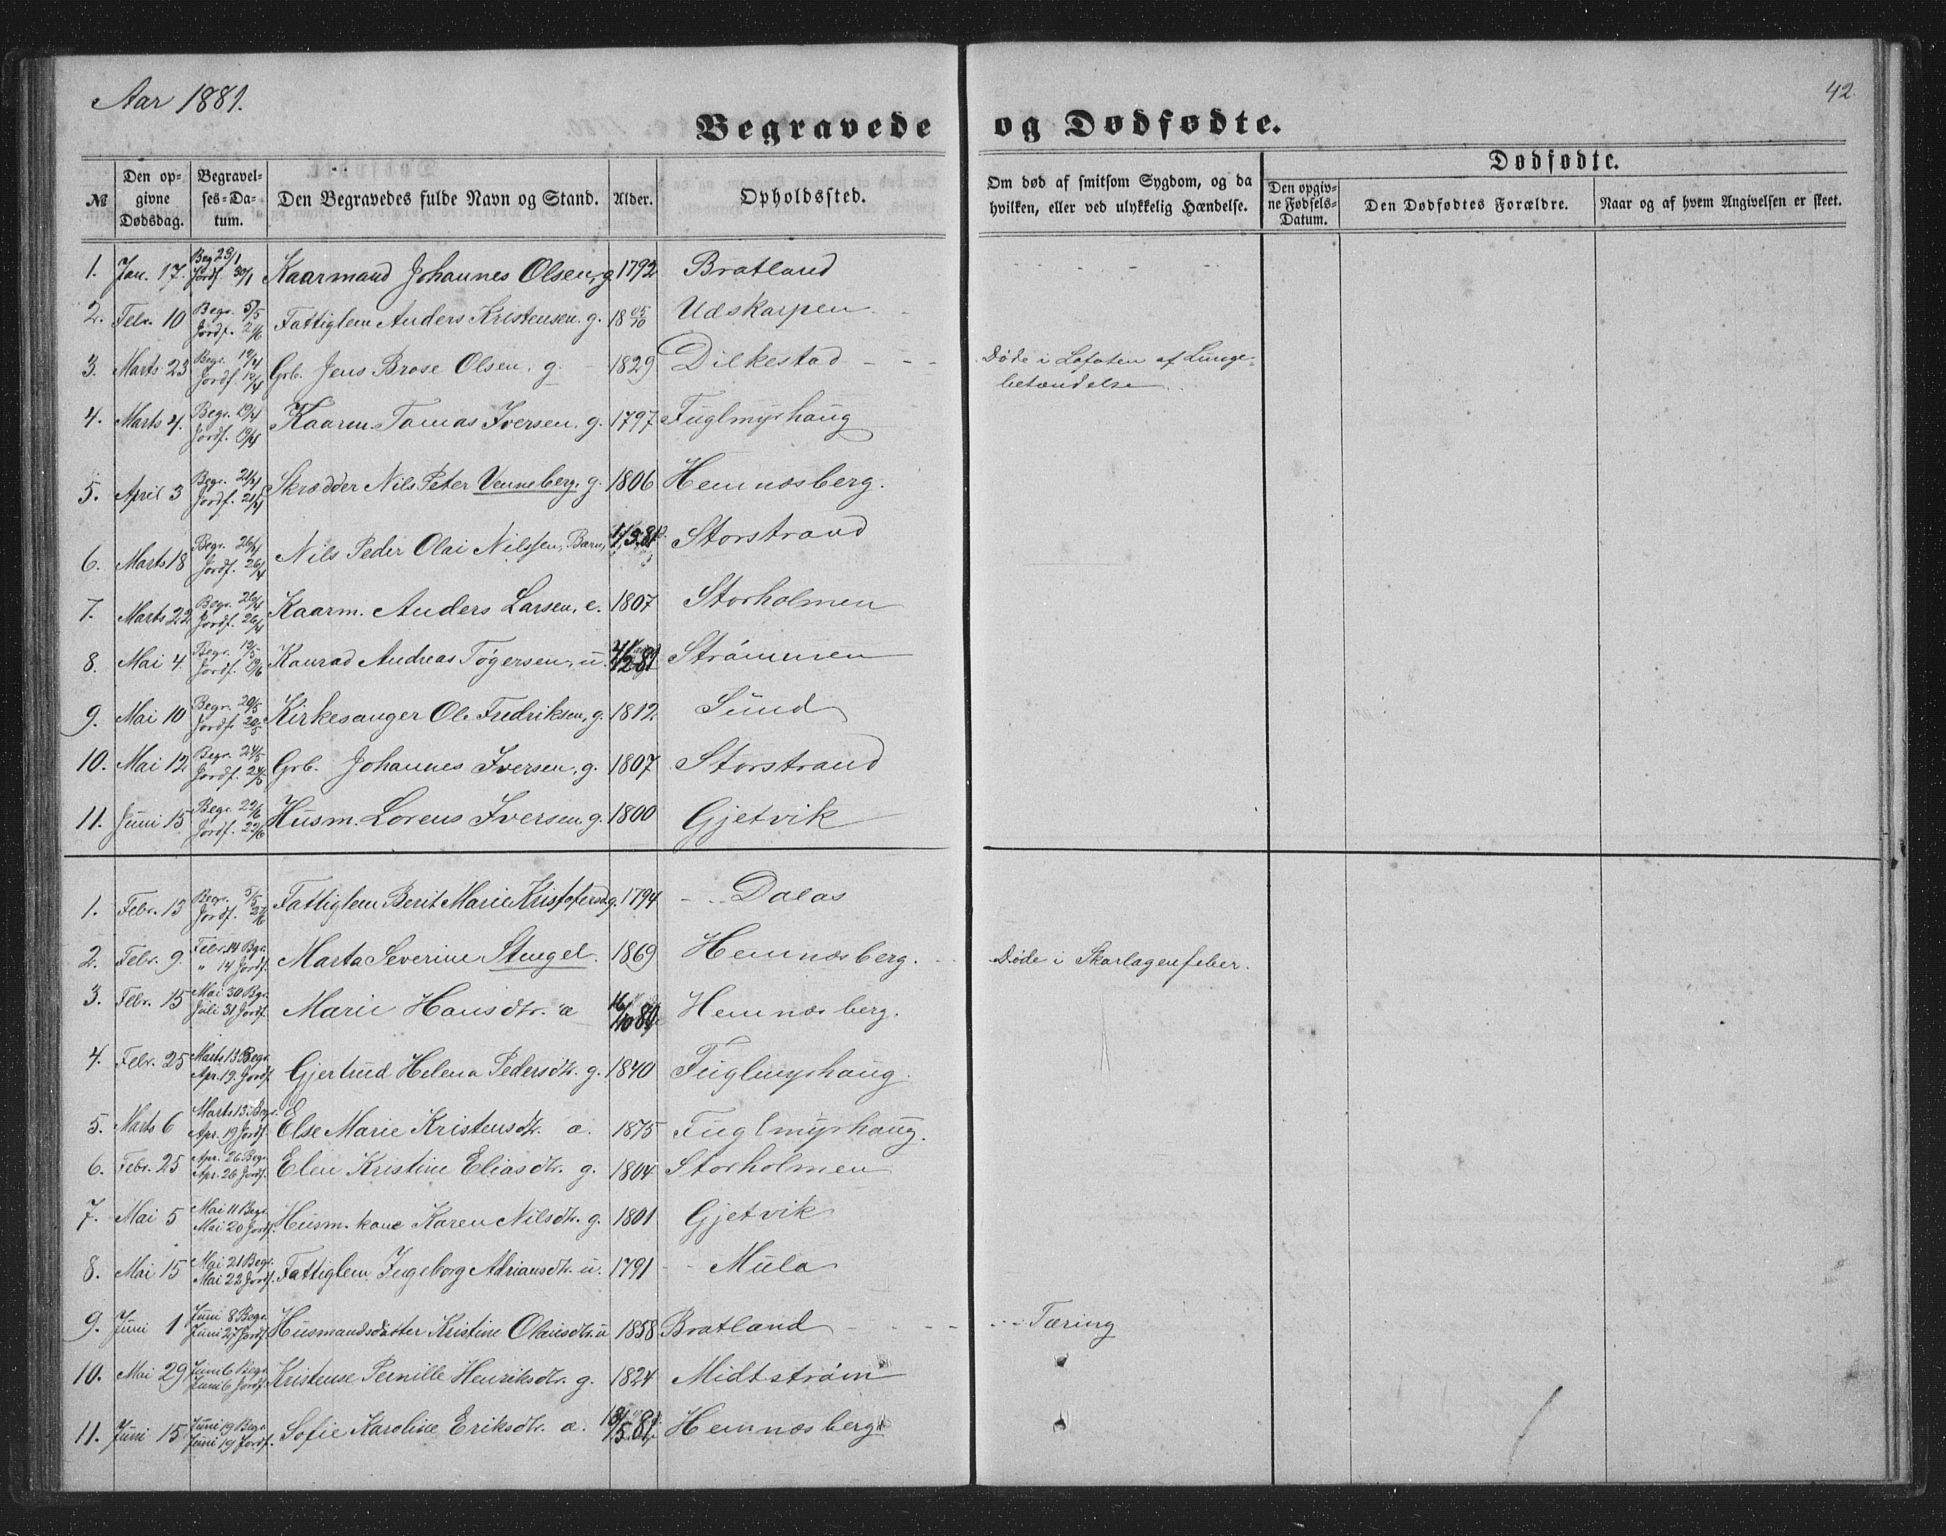 Aar 1881.
42
Begravede og Dødfødte.
№
Den opgivne Dødsdag.
Begravelses-Datum.
Den Begravedes fulde Navn og Stand.
Alder.
Opholdssted.
Om død af smitsom Sygdom, og da hvilken, eller ved ulykkelig Hændelse.
Dødfødte.
Den opgivne Fødsels-Datum.
Den Dødfødtes Forældre.
Naar og af hvem Angivelsen er skeet.
1. Jan. 17. Beg. 23/1 Jordf. 30/1 Kaarmand Johannes Olsen, g. 1792 Bratland
2. Febr. 10 Begr. 5/5 Jordf. 2/6 Fattiglem Anders Kristensen. g. 18 Udskarpen
3. Marts 23 Begr. 12/4 Jordf. 12/4 Grb. Jens Brose Olsen. g. 1829 Dilkestad Døde i Lofoten af Lungebetændelse
4. Marts 4. Begr. 19/4 Jordf. 19/4 Kaarm. Tomas Iversen. g. 1797 Fuglmyrhaug
5. April 3 Begr. 21/4 Jordf. 21/4 Skrædder Nils Peter Venneberg. g. 1806 Hemnæsberg.
6. Marts 18 Begr. 26/4 Jordf. 26/4 Nils Peder Olai Nilssen, Barn, Storstrand
7. Marts 22 Begr. 26/4 Jordf. 26/4 Kaarm. Anders Larsen, e. 1807 Storholmen
8. Mai 4. Begr. 19/5 Jordf. 19/6 Konrad Andreas Tøgersen, u. 81 Strømmen
9. Mai 10 Begr. 20/5 Jordf. 20/5 Kirkesanger Ole Fredriksen, g. 1812. Sund
10. Mai 12 Begr. 24/5 Jordf. 24/5 Grb. Johannes Iversen, g. 1807 Storstrand
11. Juni 15 Begr. 22/6 Jordf. 22/6 Husm. Lorens Iversen. g. 1800 Gjetvik
1. Febr. 13 Begr. 5/5 Jordf. 2/6 Fattiglem Berit Marie Kristofersd. g. 1794 Dalas
2. Febr. 9. Febr. 14 Begr. " 14 Jordf. Marta Severine Stengel. 1869 Hemnæsberg. Døde i Skarlagenfeber.
3. Febr. 15 Mai 30 Bgr. Juli 31 Jordf. Marie Hansdtr. æ 16/10 80 Hemnæsberg.
4. Febr. 25 Marts 13 Begr. Apr. 19. Jordf. Gjertrud Helena Pedersdtr. g. 1840 Fuglmyrhaug.
5. Marts 6 Marts 13 Begr. Apr. 19 Jordf. Else Marie Kristensdtr. æ. 1875 Fuglmyrhaug.
6. Febr. 25 Apr. 26 Begr. Apr. 26 Jordf. Elen Kristine Eliasdtr. g. 1804 Storholmen
7. Mai 5 Mai 11 Begr. Mai 20 Jordf. Husm. kone Karen Nilsdtr. g. 1801 Gjetvik
8. Mai 15 Mai 21 Begr. Mai 22 Jordf. Fattiglem Ingeborg Adriansdtr. u. 1791 Mula
9. Juni 1 Juni 8 Begr. Juni 27 Jordf. Husmandsdatter Kristine Olausdtr. u 1858 Bratland Tæring
10. Mai 29 Juni 6 Begr. Juni 6 Jordf. Kristense Pernille Henriksdtr. g. 1824 Midtstrøm
11. Juni 15 Juni 19 Begr. Juni 19 Jordf. Sofie Karoline Eriksdtr. æ. 81 Hemnæsberg